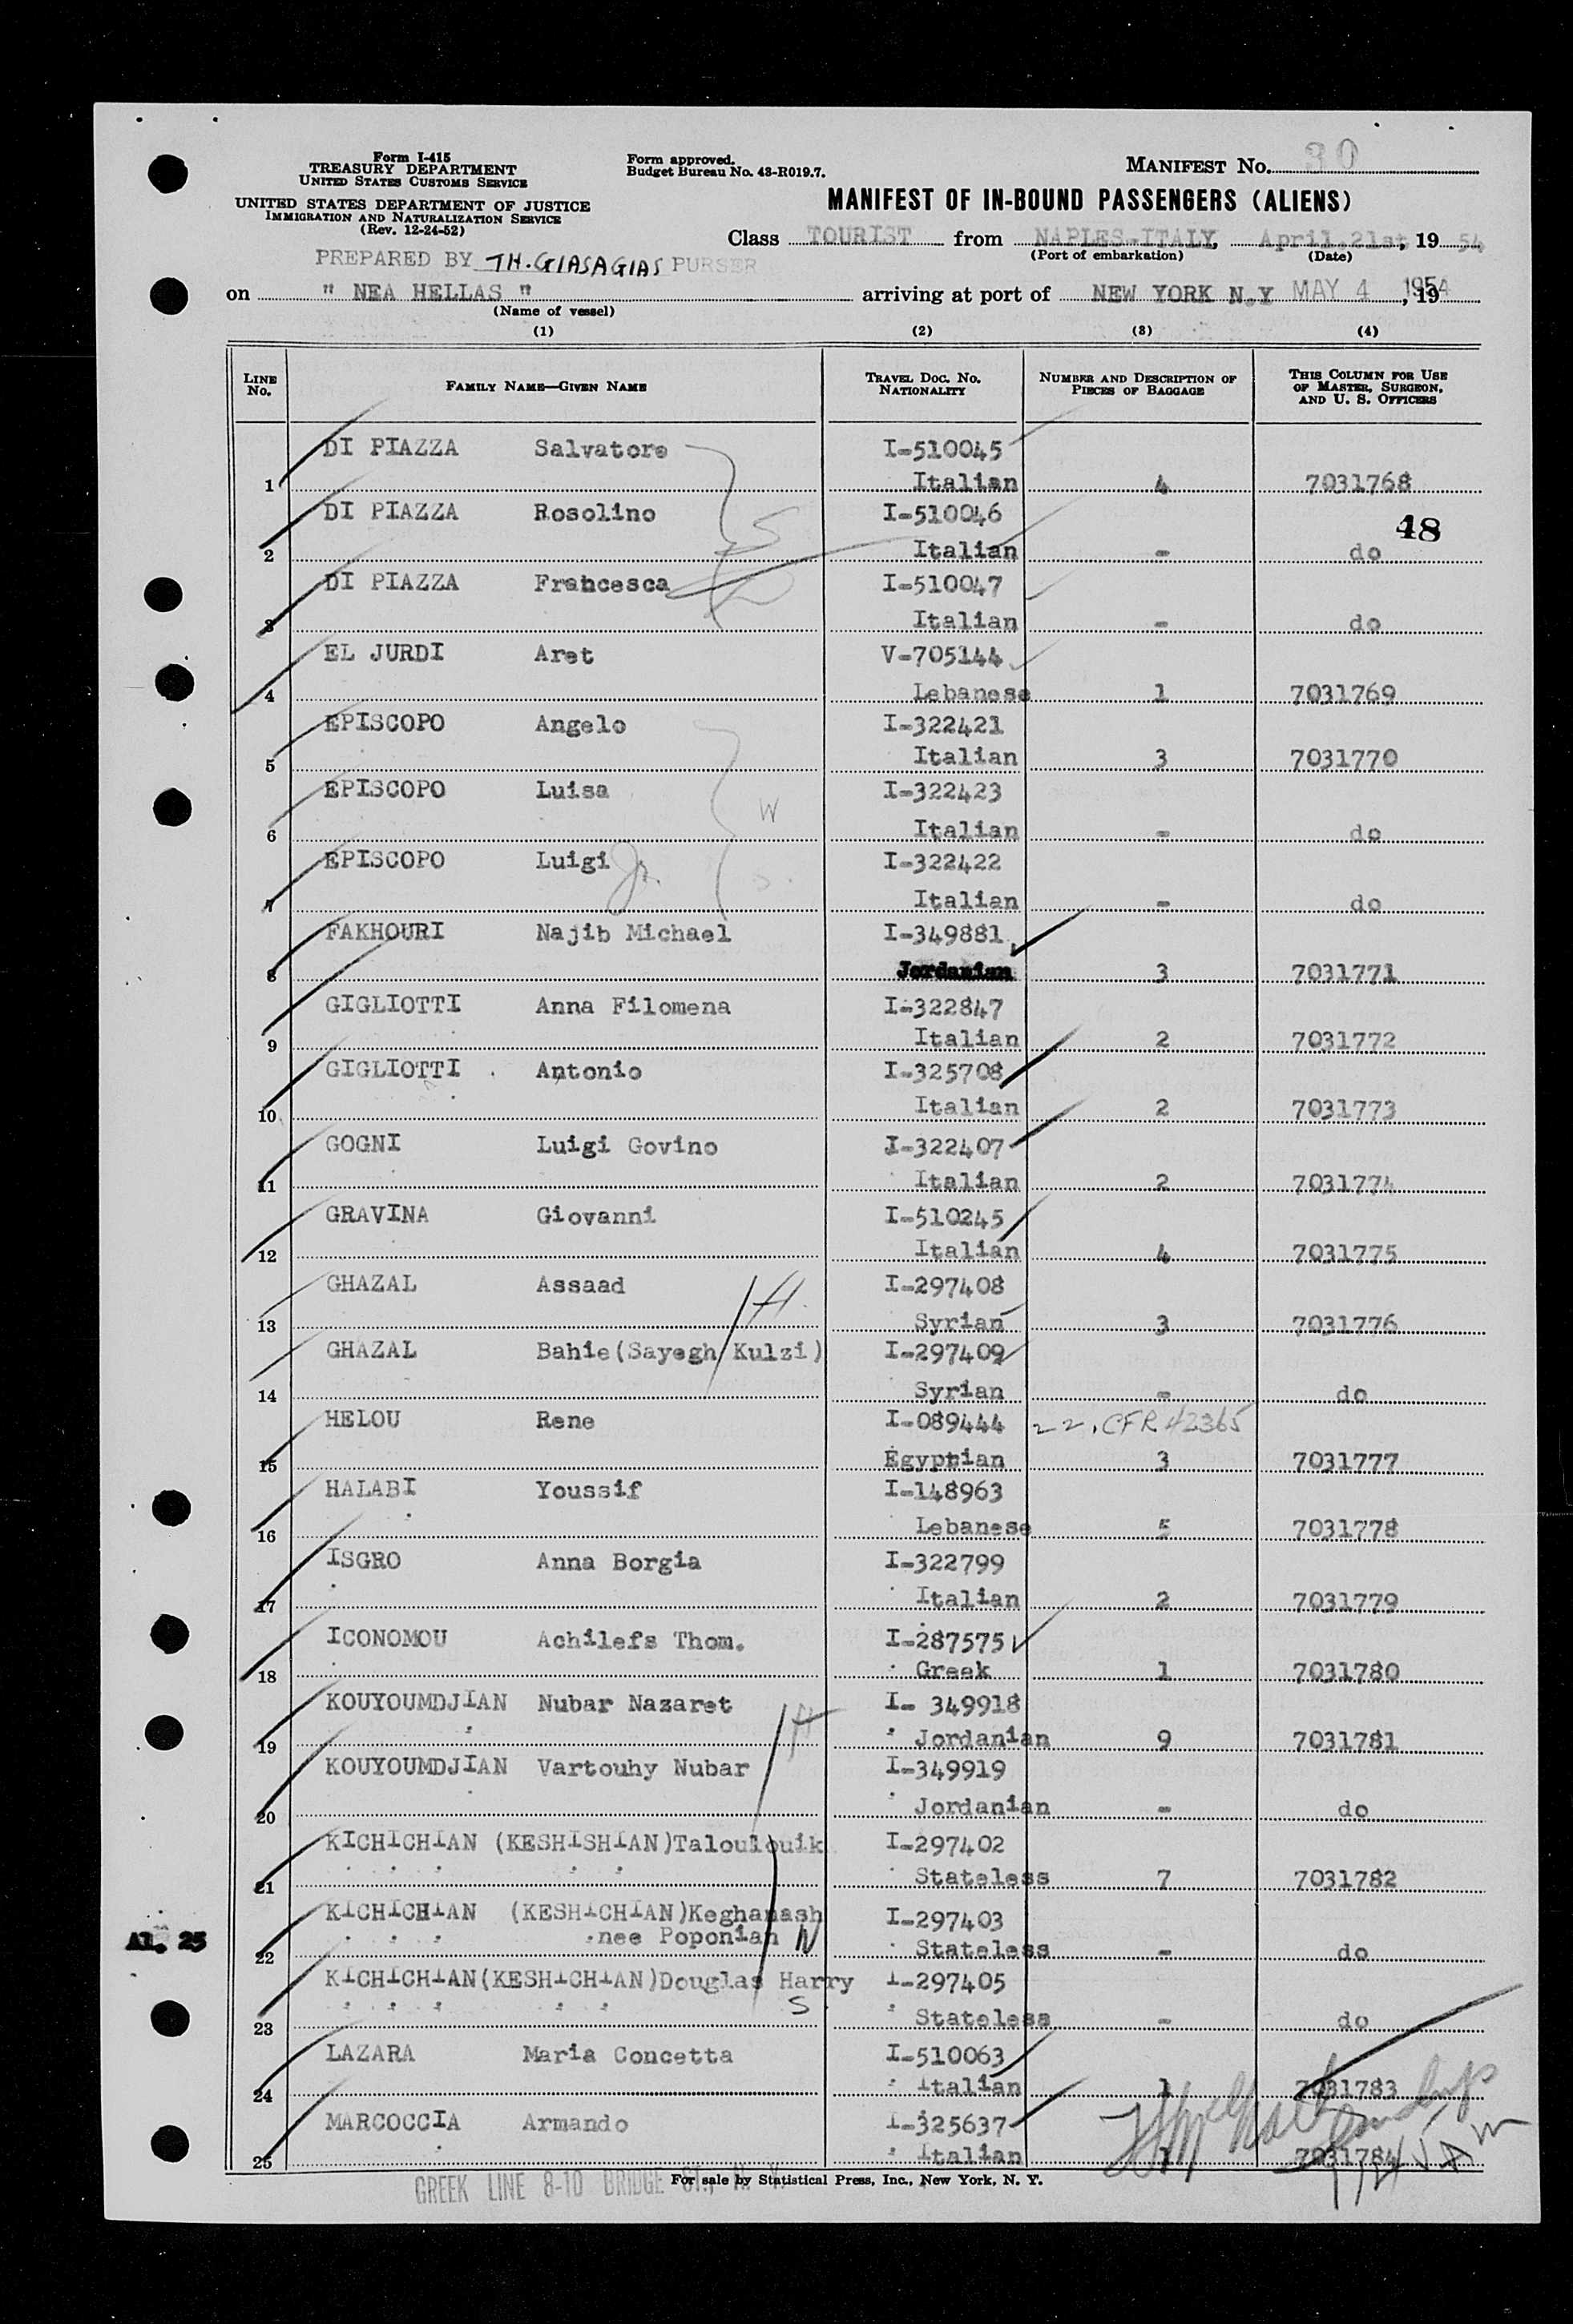 Form I-415
TREASURY DEPARTMENT
UNITED STATES CUSTOMS SERVICE
UNITED STATES DEPARTMENT OF JUSTICE
IMMIGRATION AND NATURALIZATION SERVICE
(Rev. 12-24-52)
Form approved.
Budget Bureau No. 43-R019.7.
MANIFEST No. 30
MANIFEST OF IN-BOUND PASSENGERS (ALIENS)
Class TOURIST from NAPLES-ITALY, April, 21st, 19 54
(Port of embarkation) (Date)
PREPARED BY TH. GIASAGIAS PURSER
on " NEA HELLAS " arriving at port of NEW YORK N.Y MAY 4 1954, 19
(Name of vessel)
(1) (2) (3) (4)
LINE No. FAMILY NAME—GIVEN NAME TRAVEL DOC. No. NATIONALITY NUMBER AND DESCRIPTION OF PIECES OF BAGGAGE THIS COLUMN FOR USE OF MASTER, SURGEON, AND U. S. OFFICERS
DI PIAZZA Salvatore I-510045
1 Italian 4 7031768
DI PIAZZA Rosolino I-510046 48
2 Italian - do
DI PIAZZA Francesca I-510047
3 Italian - do
EL JURDI Aret V-705144
4 Lebanese 1 7031769
EPISCOPO Angelo I-322421
5 Italian 3 7031770
EPISCOPO Luisa I-322423
W
6 Italian - do
EPISCOPO Luigi Jr. I-322422
S.
7 Italian - do
FAKHOURI Najib Michael I-349881
8 Jordanian 3 7031771
GIGLIOTTI Anna Filomena I-322847
9 Italian 2 7031772
GIGLIOTTI Antonio I-325708
10 Italian 2 7031773
GOGNI Luigi Govino I-322407
11 Italian 2 7031774
GRAVINA Giovanni I-510245
12 Italian 4 7031775
GHAZAL Assaad H. I-297408
13 Syrian 3 7031776
GHAZAL Bahie(Sayegh Kulzi) I-297409
14 Syrian - do
HELOU Rene I-089444 22.CFR 42365
15 Egyptian 3 7031777
HALABI Youssif I-148963
16 Lebanese 5 7031778
ISGRO Anna Borgia I-322799
17 Italian 2 7031779
ICONOMOU Achilefs Thom. I-287575
18 Greek 1 7031780
KOUYOUMDJIAN Nubar Nazaret H I- 349918
19 Jordanian 9 7031781
KOUYOUMDJIAN Vartouhy Nubar I-349919
20 Jordanian - do
KICHICHIAN (KESHISHIAN)Taloulouik I-297402
21 Stateless 7 7031782
KICHICHIAN (KESHICHIAN)Keghanash I-297403
Al. 25
nee Poponian W
22 Stateless - do
KICHICHIAN(KESHICHIAN)Douglas Harry I-297405
S
23 Stateless - do
LAZARA Maria Concetta I-510063
24 Italian 1 7031783
MARCOCCIA Armando I-325637
25 Italian 1 7031784
GREEK LINE 8-10 BRIDGE ST., N. Y.
For sale by Statistical Press, Inc., New York, N. Y.